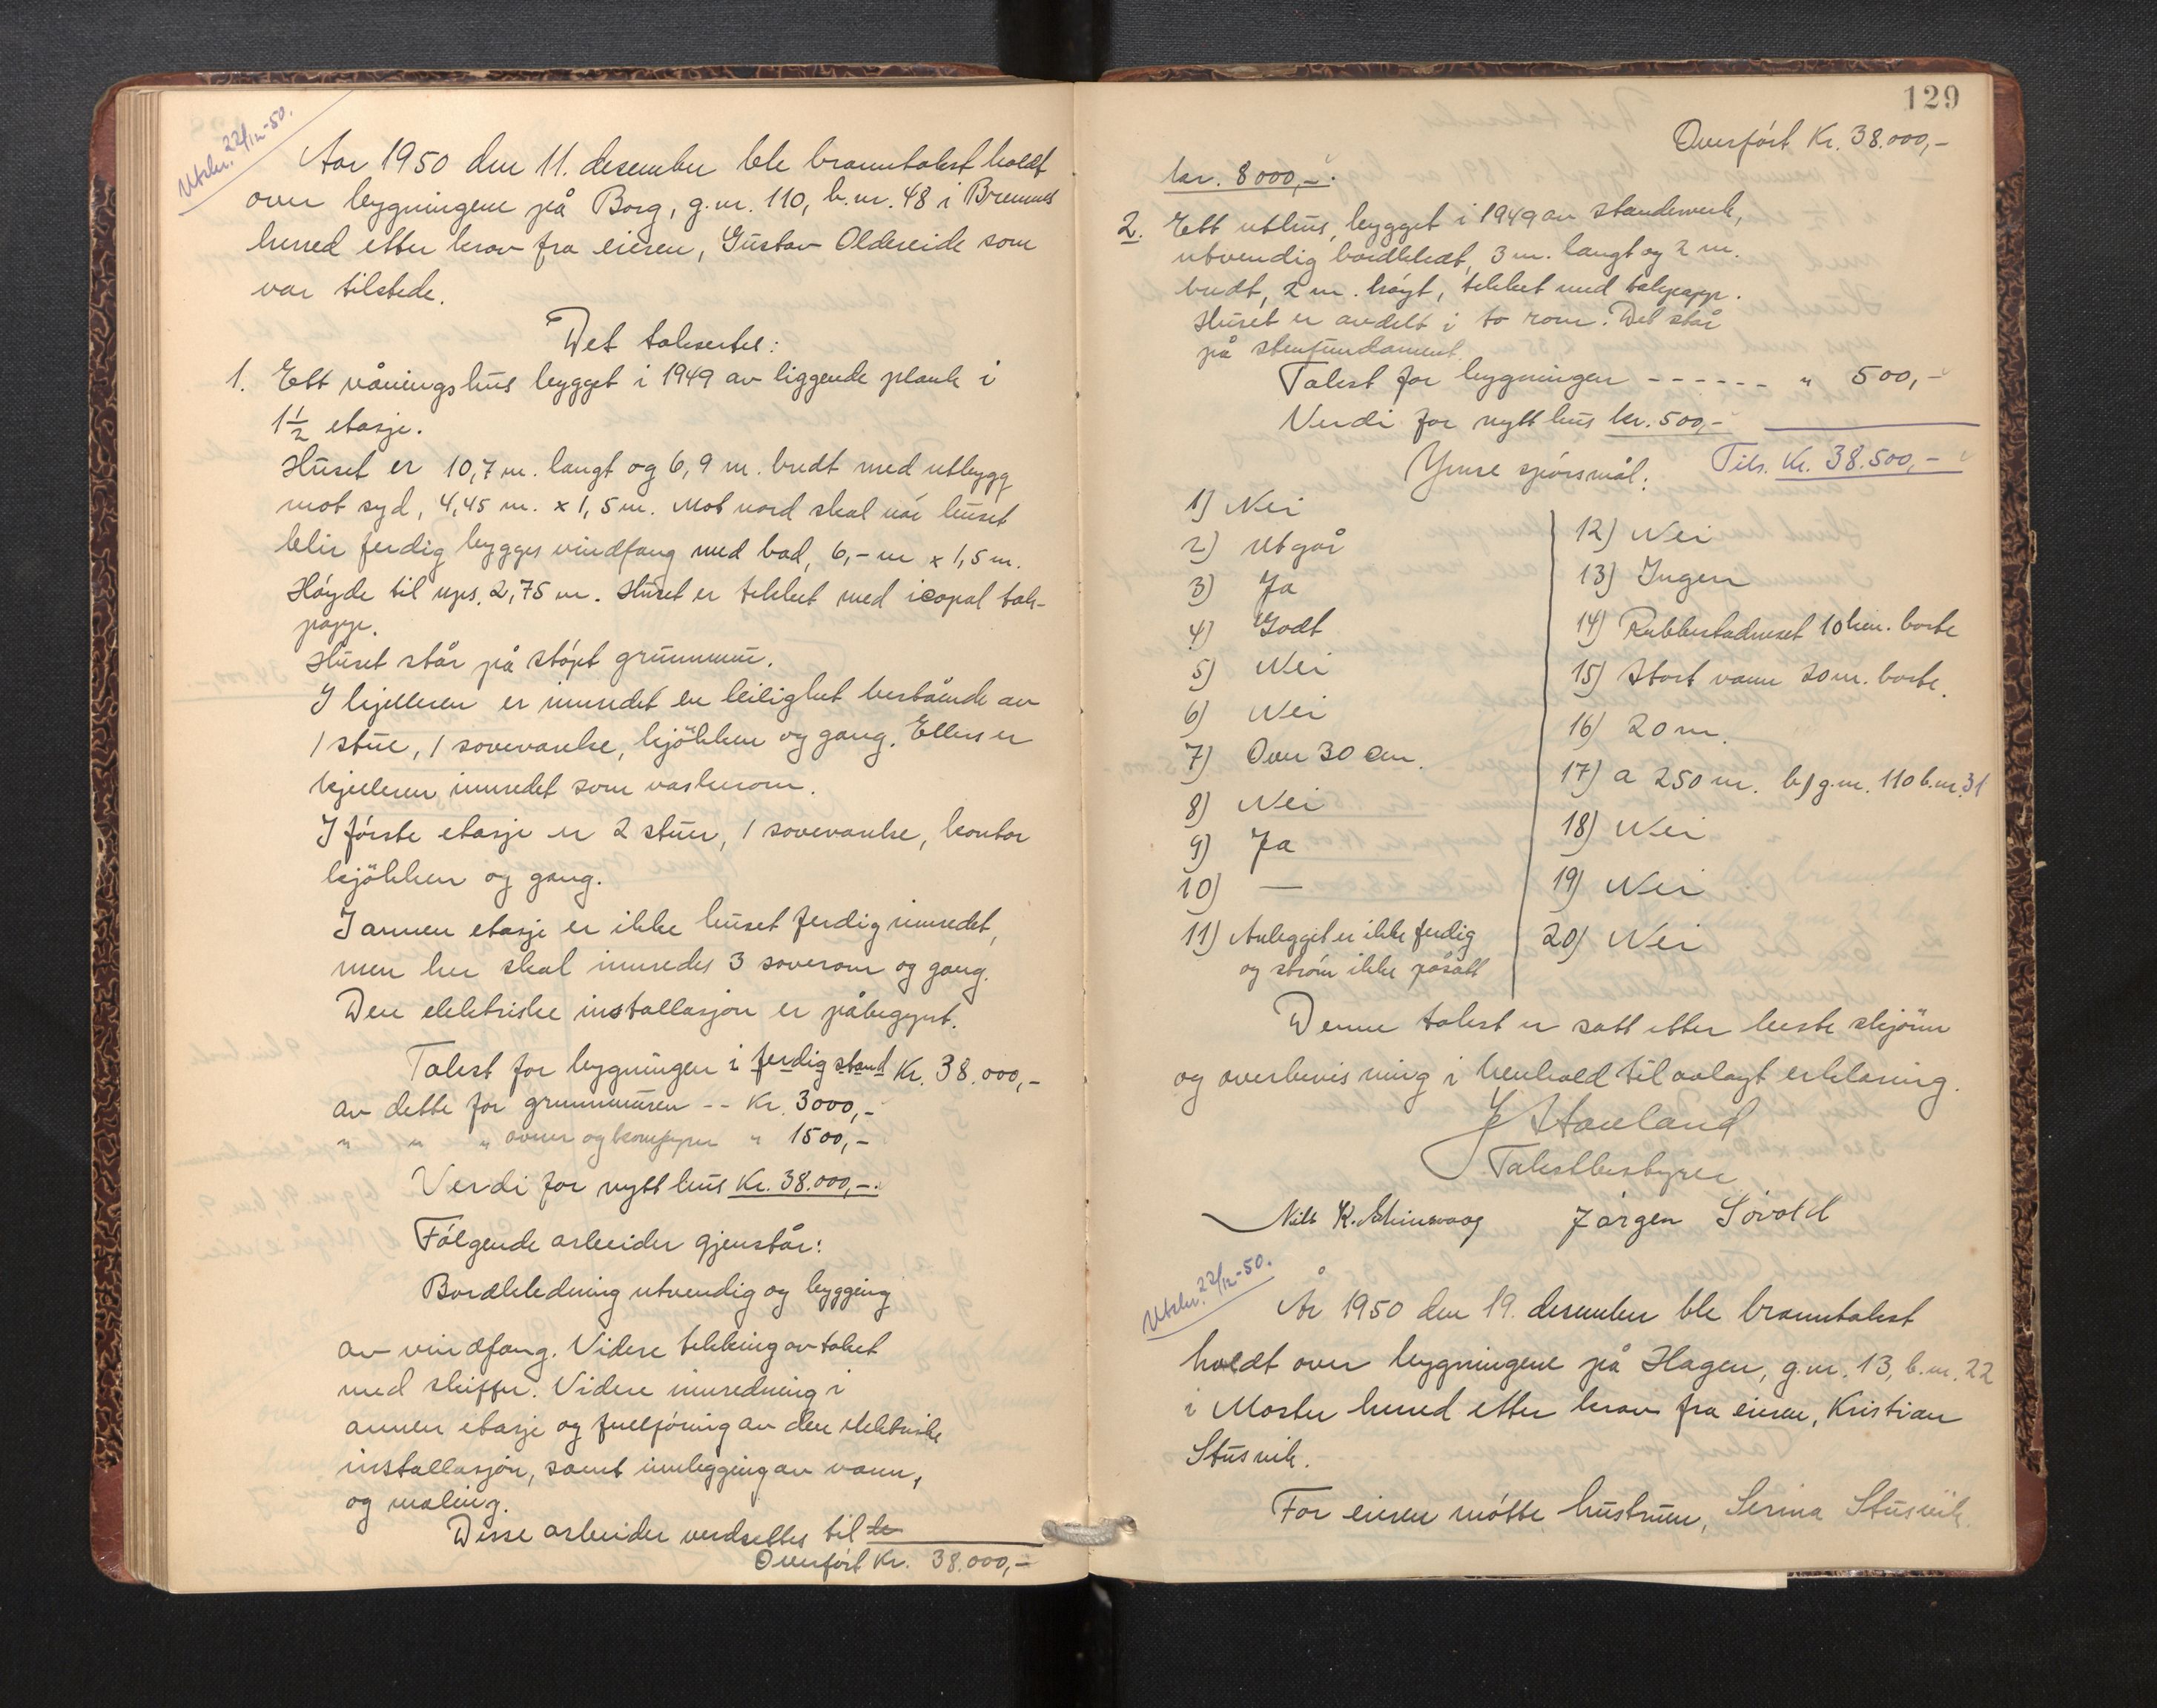 Utskr. 22/12-50.
Aar 1950 den 11. desember ble branntakst holdt
over bygningene på Borg, g.nr. 110, b.nr. 48 i Bremnes
herred etter krav fra eieren, Gustav Oldereide som
var tilstede.
Det taksertes:
1. Ett våningshus bygget i 1949 av liggende plank i
1½ etasje.
Huset er 10,7 m. langt og 6,9 m. bredt med utbygg
mot syd, 4,45 m. x 1,5 m. Mot nord skal når huset
blir ferdig bygges vindfang med bad, 6,- m x 1,5 m.
Høyde til ups. 2,75 m. Huset er tekket med icopal tak-
papp.
Huset står på støpt grunnmur.
I kjelleren er innredet en leilighet bestående av
1 stue, 1 soveværelse, kjökken og gang. Ellers er
kjelleren innredet som vaskerom.
I første etasje er 2 stuer, 1 soveværelse, kontor
kjökken og gang.
I annen etasje er ikke huset ferdig innredet,
men her skal innredes 3 soverom og gang.
Den elektriske installasjon er påbegynt.
Takst for bygningen i ferdig stand Kr. 38.000,-
av dette for grunnmuren -- Kr. 3000,-
" " " ovner og komfyrer " 1500,-
Verdi for nytt hus Kr. 38.000,-.
Følgende arbeider gjenstår:
Bordkledning utvendig og bygging
av vindfang. Videre tekking av taket
med skiffer. Videre innredning i
annen etasje og fullføring av den elektriske
installasjon, samt innlegging av vann,
og maling.
Disse arbeider verdsettes til
Overført Kr. 38.000,-
129
Overført Kr. 38.000,-
kr. 8000,-.
2. Ett uthus, bygget i 1949 av stenderverk,
utvendig bordkledt, 3 m. langt og 2 m.
bredt, 2 m. høyt, tekket med takpapp.
Huset er avdelt i to rom. Det står
på stenfundament.
Takst for bygningen ------ " 500,-
Verdi for nytt hus kr. 500,-
Tils. Kr. 38.500,-
Ymse spørsmål:
1) Nei
2) Utgår
3) Ja
4) Godt
5) Nei
6) Nei
7) Over 30 cm.
8) Nei
9) Ja
10) —
11) Anlegget er ikke ferdig
og strøm ikke påsatt
12) Nei
13) Ingen
14) Rubbestadneset 10 km. borte
15) Stort vann 20 m. borte.
16) 20 m.
17) a 250 m. b) g.nr. 110 b.nr. 31
18) Nei
19) Nei
20) Nei
Denne takst er satt etter beste skjönn
og overbevisning i henhold til avlagt erklæring.
Takstbestyrer
Nils K. Steinsvaag Jørgen Løvold
Utskr. 22/12-50.
År 1950 den 19. desember ble branntakst
holdt over bygningene på Hagen, g.nr. 13, b.nr. 22
i Moster herred etter krav fra eieren, Kristian
Stusvik.
For eieren møtte hustruen, Serina Stusvik.